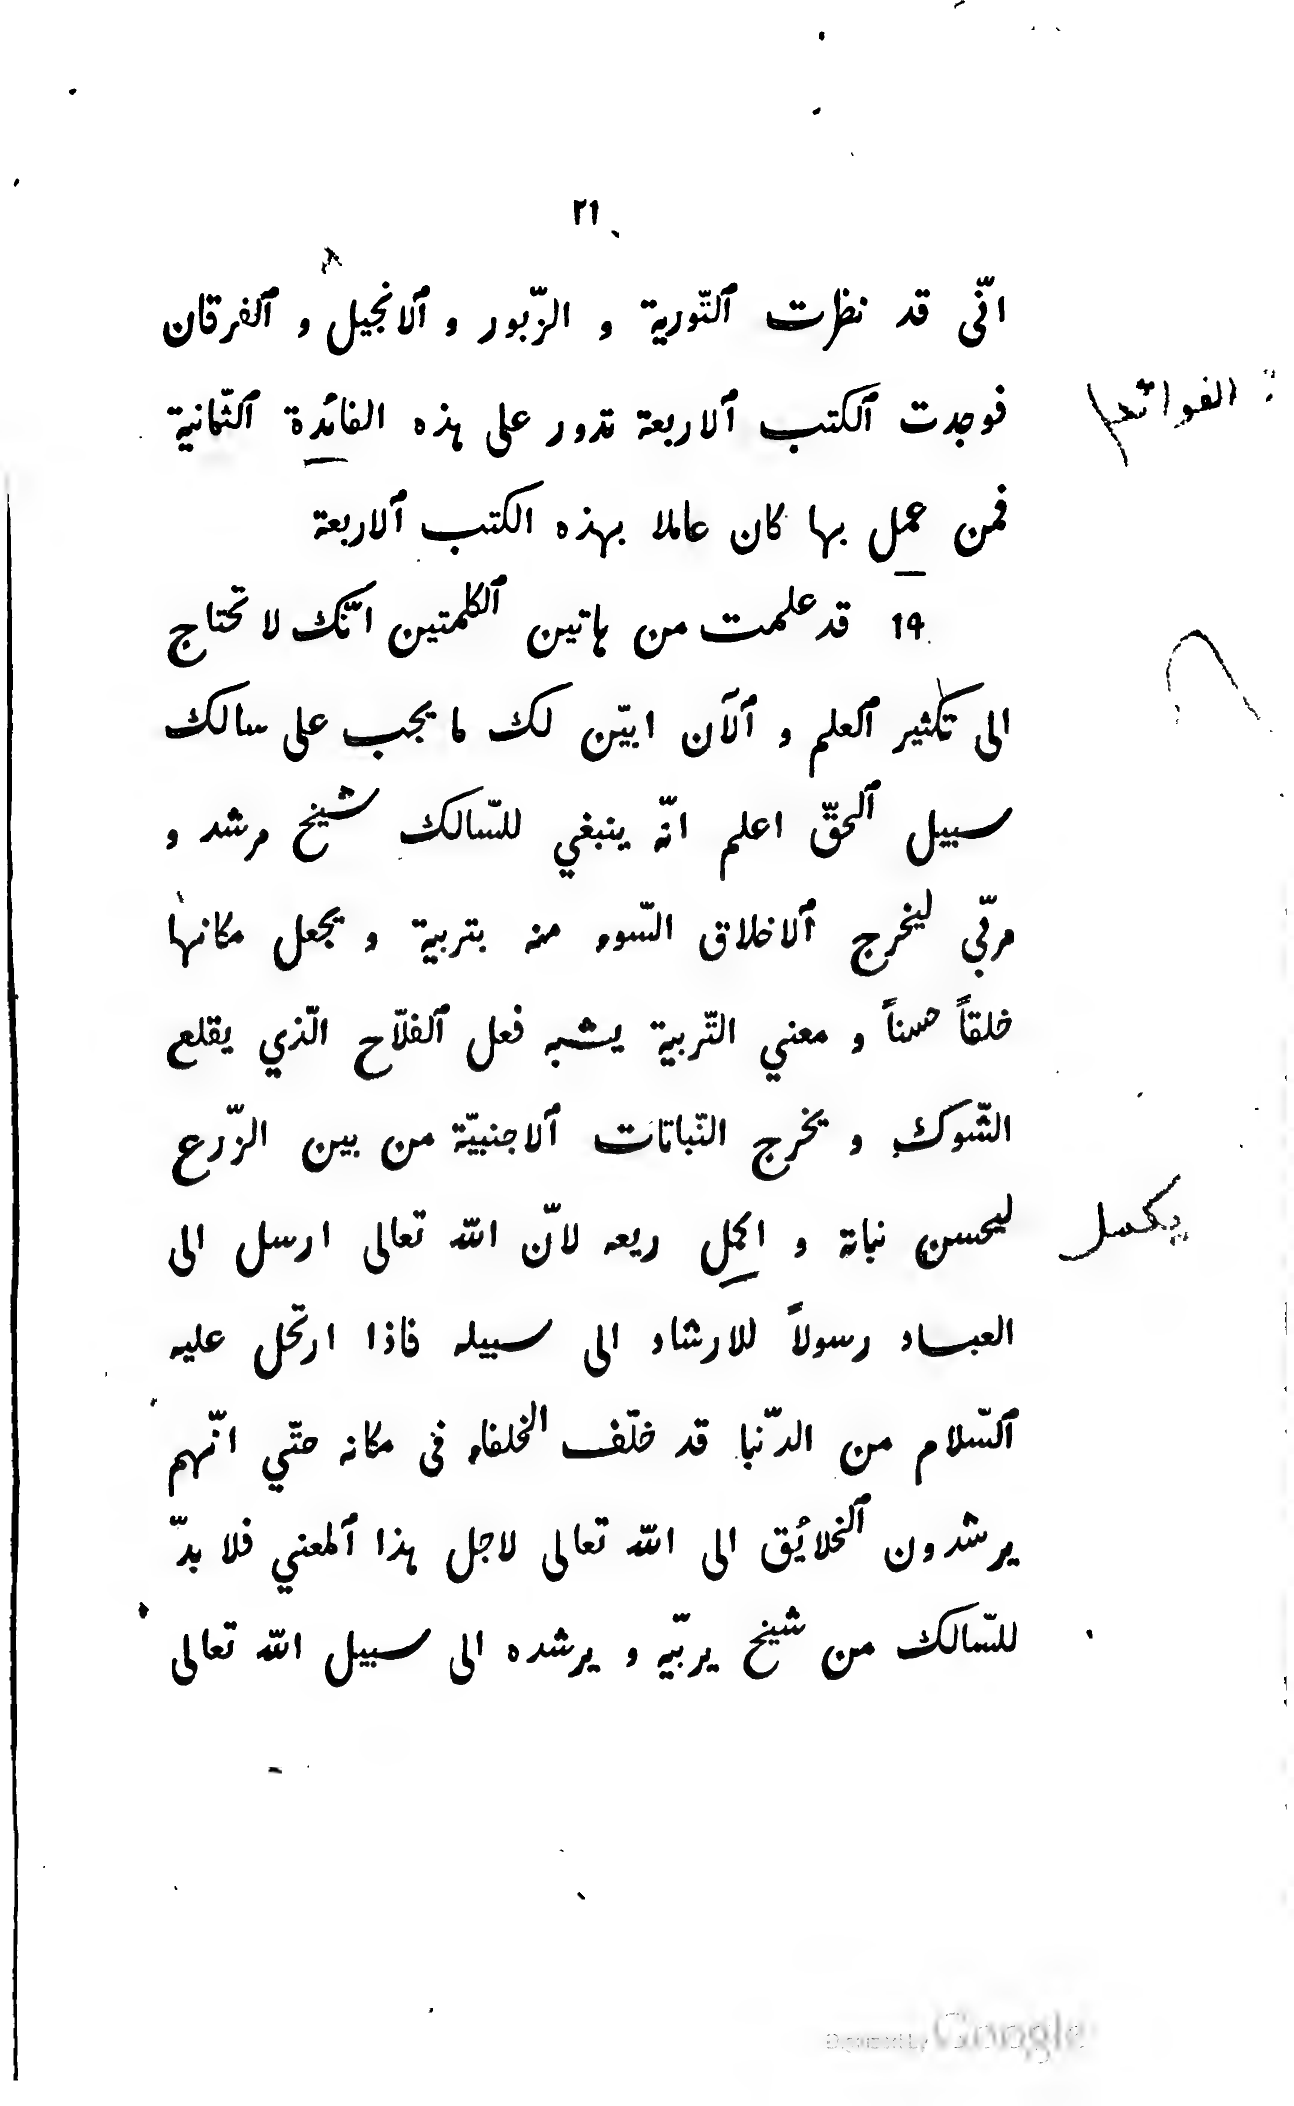 ٢١
انّى قد نظرت ٱلتّورية و الزّبور و ٱلانجيل و ٱلفرقان
فوجدت ٱلكتب ٱلاربعة تدور على هذه الفائدة ٱلثّمانية
الفوائد
فمن عمل بها كان عاملا بهذه الكتب ٱلاربعة
١٩ قد علمت من هاتين ٱلكلمتين انّك لا تحتاج
الى تكثير ٱلعلم و ٱلآن ابيّن لك ما يجب على سالك
سبيل ٱلحقّ اعلم انّه ينبغي للسّالك شيخ مرشد و
مربّي ليخرج ٱلاخلاق السّوء منه بتربية و يجعل مكانها
خلقاً حسناً و معني التّربية يشبه فعل ٱلفلّاح الّذي يقلع
الشّوك و يخرج النّباتات ٱلاجنبيّة من بين الزّرع
ليحسن نباته و اكمل ريعه لانّ الله تعالى ارسل الى
يكمل
العباد رسولاً للارشاد الى سبيله فاذا ارتحل عليه
ٱلسّلام من الدّنيا قد خلّف الخلفاء فى مكانه حتّي انّهم
يرشدون ٱلخلائق الى الله تعالى لاجل هذا ٱلمعني فلا بدّ
للسّالك من شيخ يربّيه و يرشده الى سبيل الله تعالى
Digitized by Google